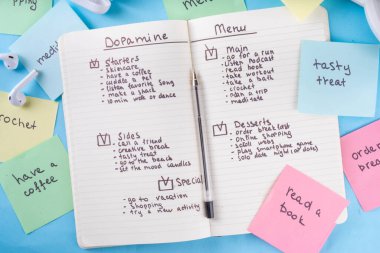 Dopamine Menu
Starters
- skincare
- have a coffee
- cuddle a pet
- listen favorite song
- make a snack
- 10 min walk or dance
Sides
- call a friend
- creative break
- tasty treat
- go to the beach
- set the mood candles
Special
- go to vacation
- shopping
- try a new activity
Main
- go for a run
- listen podcast
- read book
- take workout
- take a bath
- crochet
- plan a trip
- meditate
Desserts
- order breakfast
- online shopping
- scroll webs
- play smartphone game
- solo date night (or dots)
tasty
treat
crochet
have a
coffee
read a
book